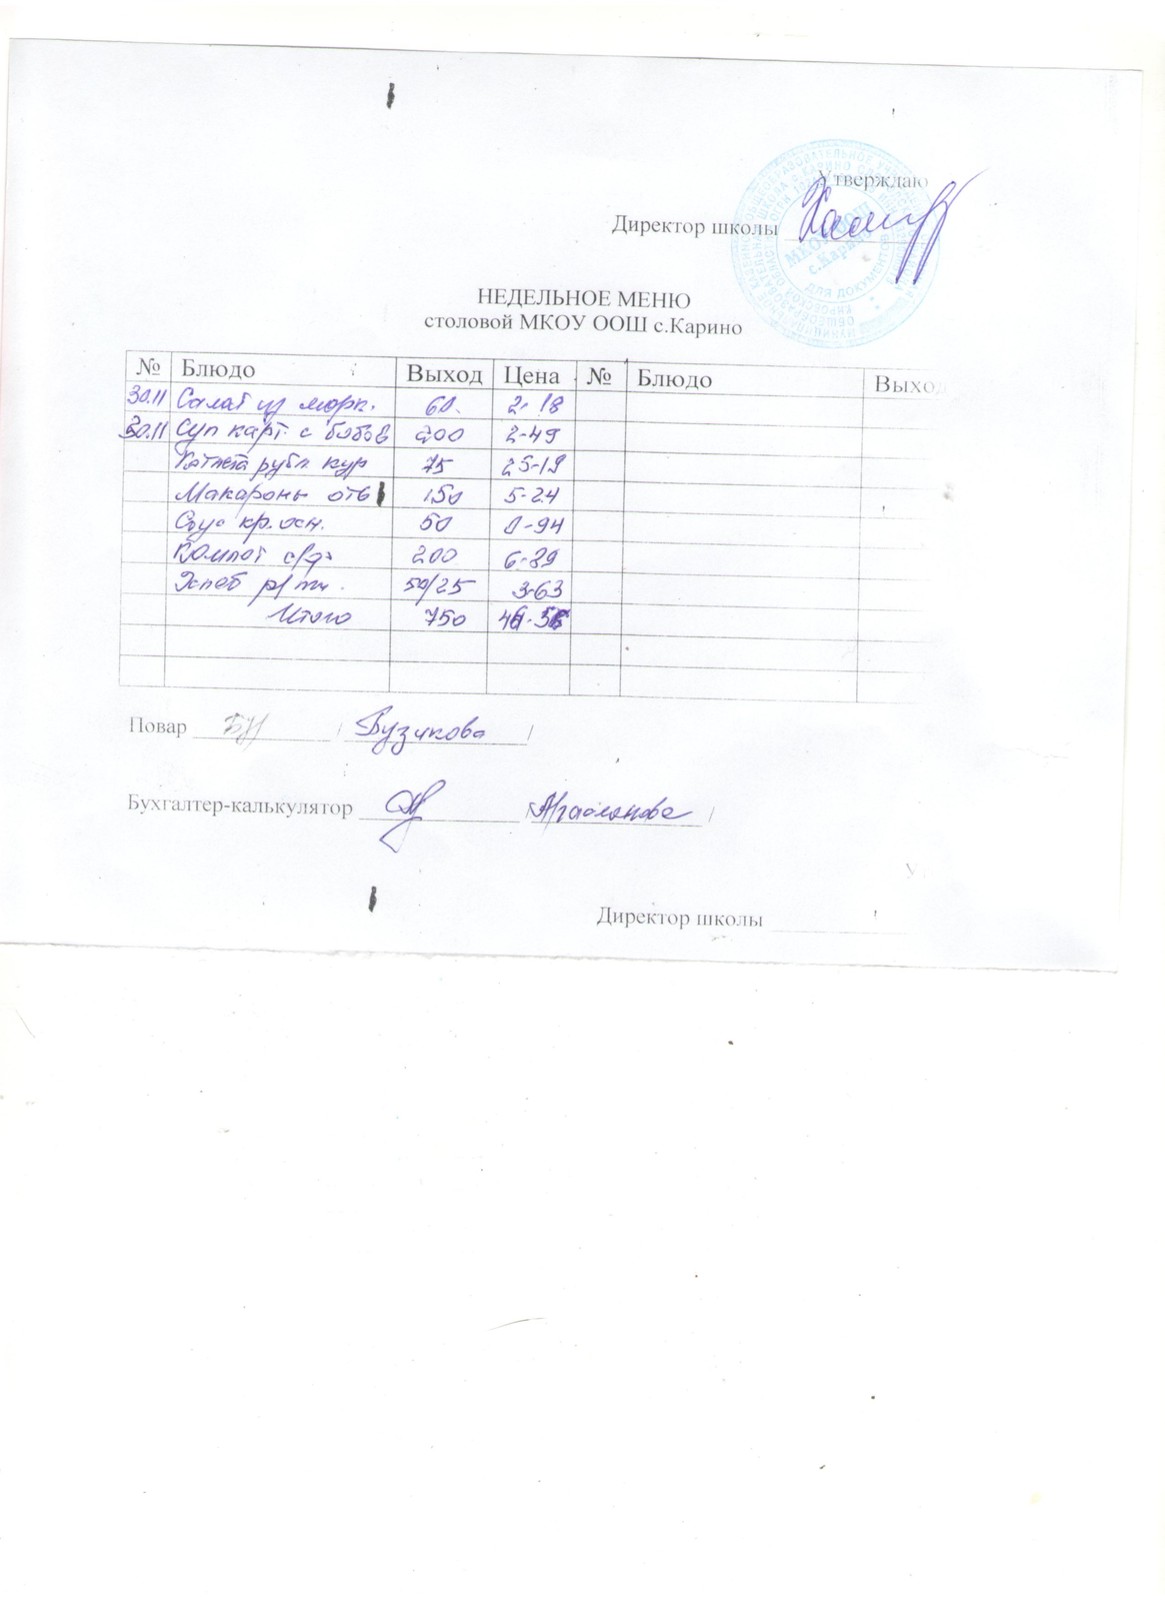 Утверждаю
Директор школы
МКОУ ООШ
с.Карино
ДЛЯ ДОКУМЕНТОВ
НЕДЕЛЬНОЕ МЕНЮ
столовой МКОУ ООШ с.Карино
№ Блюдо Выход Цена № Блюдо Выход
30.11 Салат из морк. 60. 2-18
30.11 Суп карт. с бобов 200 2-49
Котлета рубл. кур 75 25-19
Макароны отв 150 5-24
Соус кр. осн. 50 0-94
Компот с/ф 200 6-89
Хлеб р/пш. 50/25 3-63
Итого 750
Повар / Бузикова /
Бухгалтер-калькулятор / /
Директор школы